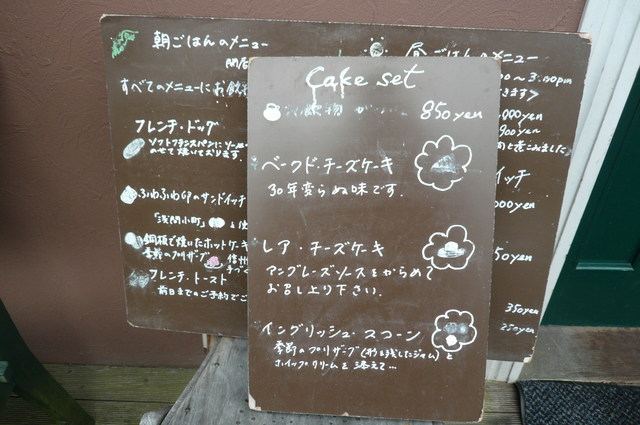 朝ごはんのメニュー
すべてのメニューにお飲
フレンチ・ドッグ
ソフトフランスパンに
のせて焼いております。
ふわふわ卵のサンドイッチ
「浅間小町」
銅板で焼いたホットケーキ
季節のプリザーブ 信州
フレンチ・トースト
前日までのご予約でご
昼ごはんのメニュー
〜3:00pm
きます>
000yen
900yen
イッチ
000yen
50yen
350yen
250yen
Cake set
850yen
ベークド・チーズケーキ
30年変らぬ味です.
レア・チーズケーキ
アングレーズソースをからめて
お召し上り下さい.
イングリッシュ・スコーン
季節のプリザーブ(形を残したジャム)と
ホイップクリームを添えて…